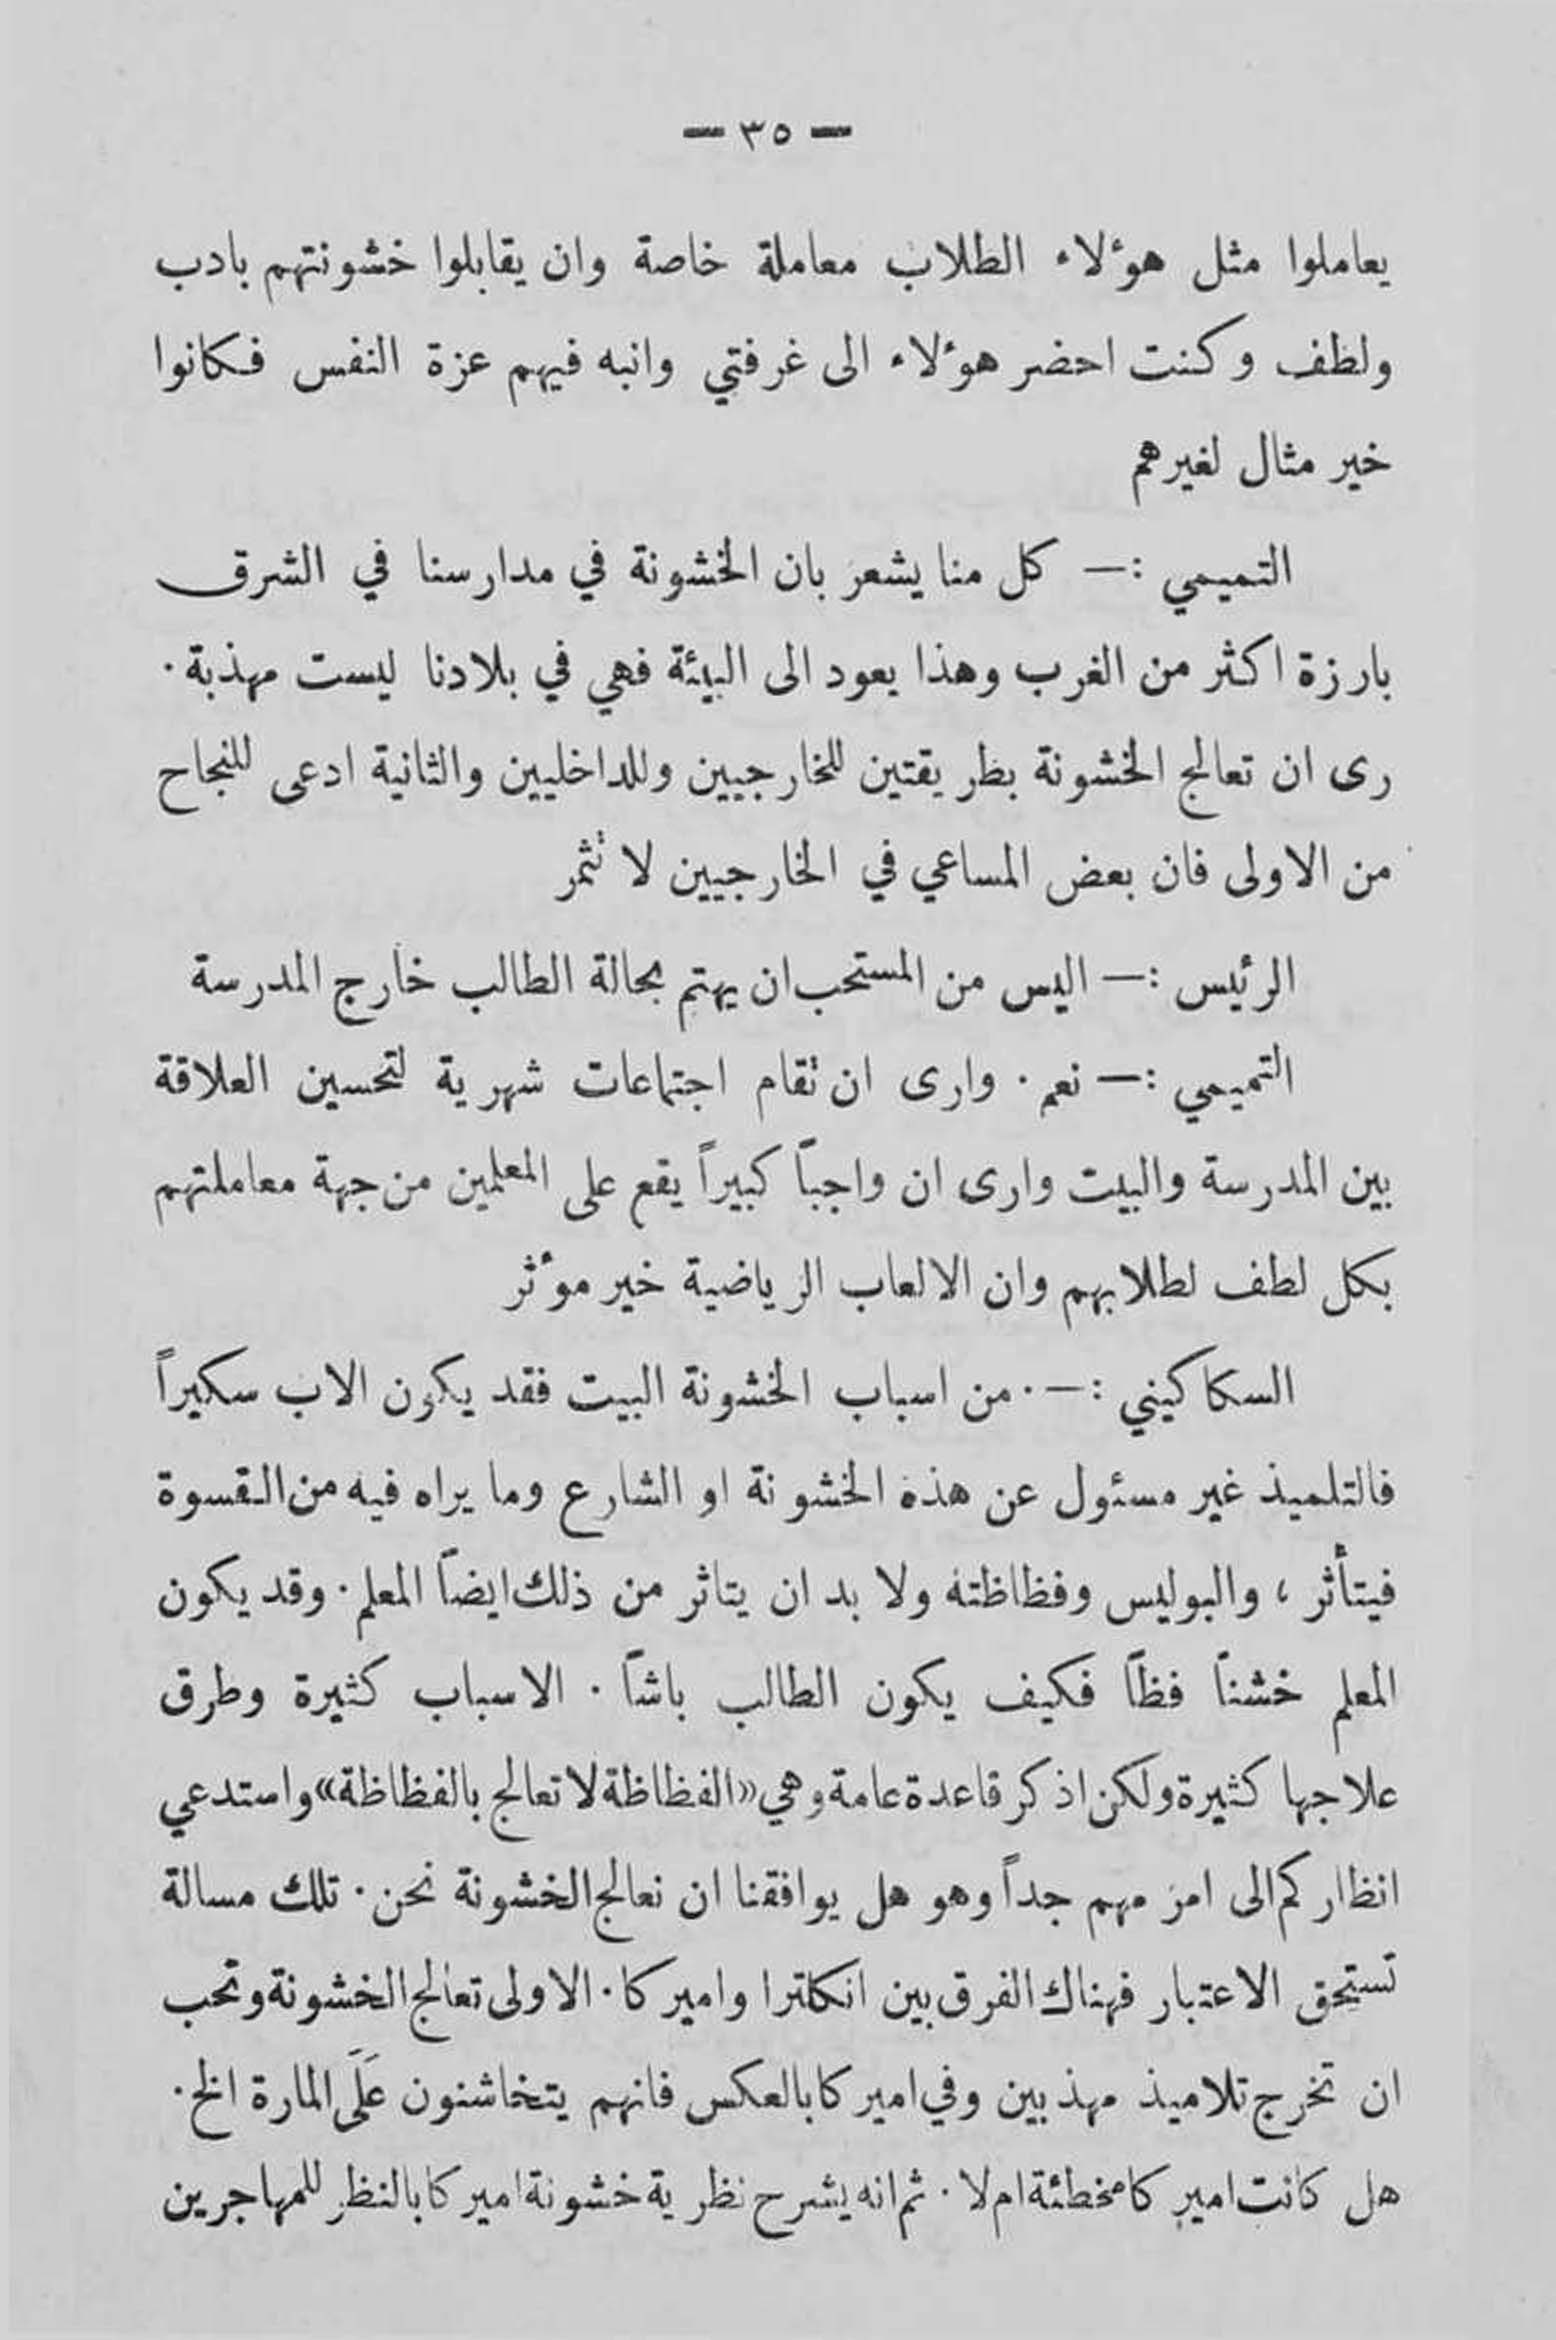 — ٣٥ —
يعاملوا مثل هوٴلاء الطلاب معاملة خاصة وان يقابلوا خشونتهم بادب
ولطف وكنت احضر هوٴلاء الى غرفتي وانبه فيهم عزة النفس فكانوا
خير مثال لغيرهم
التميمي :— كل منا يشعر بان الخشونة في مدارسنا في الشرق
بارزة اكثر من الغرب وهذا يعود الى البيئة فهي في بلادنا ليست مهذبة ·
رى ان تعالج الخشونة بطريقتين للخارجيين وللداخليين والثانية ادعى للنجاح
من الاولى فان بعض المساعي في الخارجيين لا تثمر
الرئيس :— اليس من المستحب ان يهتم بحالة الطالب خارج المدرسة
التميمي :— نعم · وارى ان تقام اجتماعات شهرية لتحسين العلاقة
بين المدرسة والبيت وارى ان واجباً كبيراً يقع على المعلمين من جهة معاملتهم
بكل لطف لطلابهم وان الالعاب الرياضية خير موٴثر
السكاكيني :— · من اسباب الخشونة البيت فقد يكون الاب سكيراً
فالتلميذ غير مسئول عن هذه الخشونة او الشارع وما يراه فيه من القسوة
فيتأثر ، والبوليس وفظاظته ولا بد ان يتاثر من ذلك ايضاً المعلم · وقد يكون
المعلم خشناً فظاً فكيف يكون الطالب باشاً · الاسباب كثيرة وطرق
علاجها كثيرة ولكن اذكر قاعدة عامة وهي «الفظاظة لا تعالج بالفظاظة» واستدعي
انظاركم الى امر مهم جداً وهو هل يوافقنا ان نعالج الخشونة نحن · تلك مسالة
تستحق الاعتبار فهناك الفرق بين انكلترا واميركا · الاولى تعالج الخشونة وتحب
ان تخرج تلاميذ مهذبين وفي اميركا بالعكس فانهم يتخاشنون عَلَى المارة الخ ·
هل كانت اميركا مخطئة ام لا · ثم انه يشرح نظرية خشونة اميركا بالنظر للمهاجرين